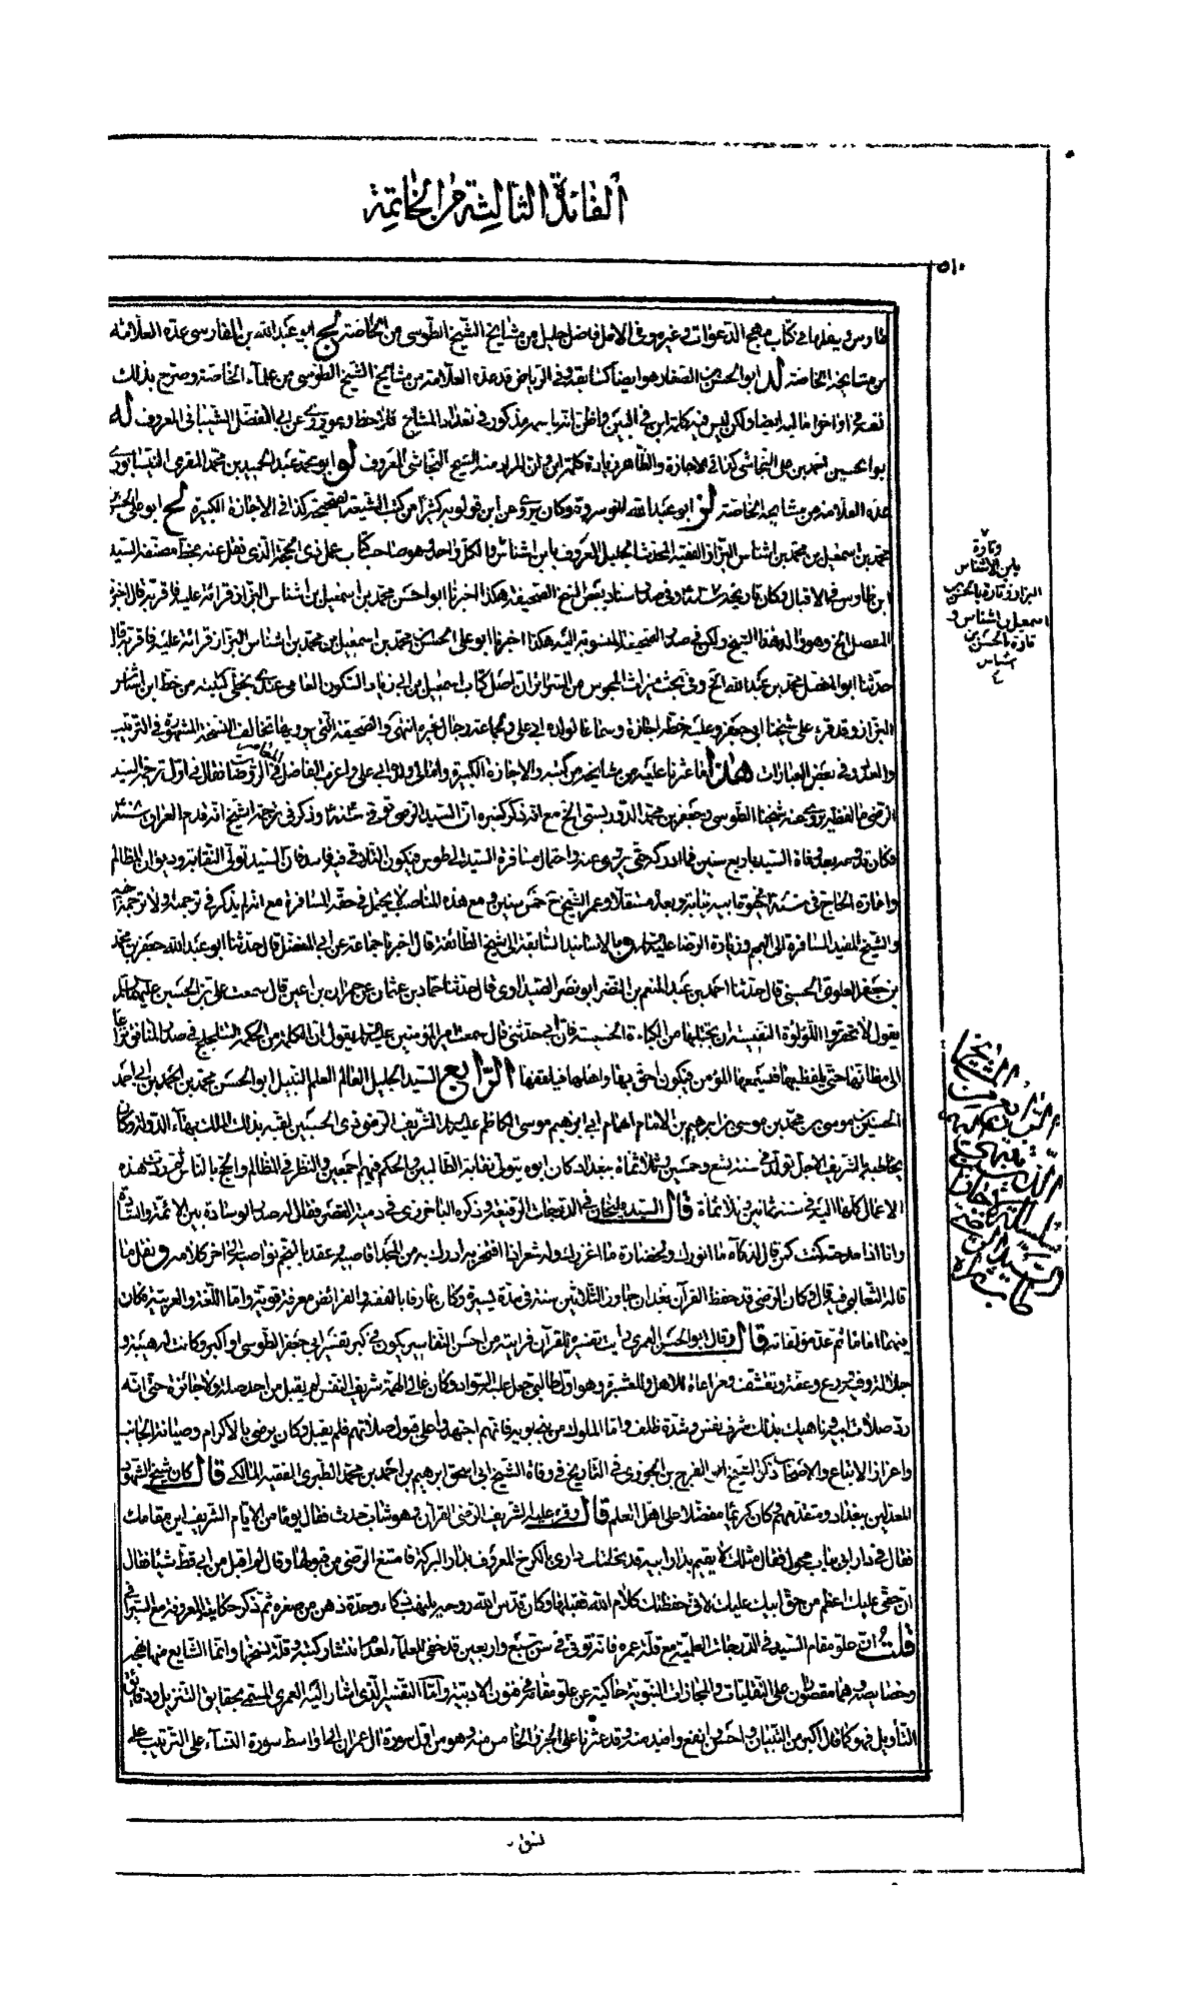 الفائدة الثالثة من الخاتمة
٥١٠
طاوس ينقلها في كتاب مهج الدعوات وغيره وفي الامل فاضل جليل من مشايخ الشيخ الطوسي من الخاصة لج ابو عبد الله بن الفارسي عده العلامة
من مشايخه الخاصة لد ابو الحسن بن الصفار هو ايضا كسابقه وفي الرياض قد عده العلامة من مشايخ الشيخ الطوسي من علماء الخاصة وصرح بذلك
نفسه في اواخر اماليه ايضا ولكن ليس فيه كلمة ابن في البين واظن انه باسمه مذكور في تعداد المشايخ فلاحظ وهو يروي عن ابي المفضل الشيباني المعروف له
ابو الحسين احمد بن علي النجاشي كذا في الاجازة والظاهر زيادة كلمة ابن وان المراد منه الشيخ النجاشي المعروف لو ابو محمد عبد الحميد بن محمد المقري النيسابوري
عده العلامة من مشايخه الخاصة لز ابو عبد الله اخو سروة وكان يروي عن ابن قولويه كثيرا من كتب الشيعة الصحيحة كذا في الاجازة الكبيرة لح ابو علي الحسن
محمد بن اسمعيل بن محمد بن اشناس البزاز الفقيه المحدث الجليل المعروف بابن اشناس والكل واحد وهو صاحب كتاب عمل ذي الحجة الذي نقل عنه بخط مصنفه السيد
ابن طاوس في الاقبال وكان تاريخه ٤٣٧ وفي صدر اسناد بعض نسخ الصحيفة هكذا اخبرنا ابو الحسن محمد بن اسمعيل بن اشناس البزاز قرائة عليه فاقر به قال اخبرنا
المفضل الخ وهو والد هذا الشيخ ولكن في صدر الصحيفة المنسوبة اليه هكذا اخبرنا ابو علي الحسن بن محمد بن اسمعيل بن محمد بن اشناس البزاز قرائة عليه فاقر به قال
حدثنا ابو المفضل محمد بن عبد الله الخ وفي بحث ميراث المجوس من السرائر ان اصل كتاب اسمعيل بن ابي زياد السكوني العامي عندي بخطي كتبته من خط ابن اشناس
البزاز وقد قرء على شيخنا ابي جعفر وعليه خطه اجازة وسماعا لولده ابي علي ولجماعة رجال غيره انتهى والصحيفة التي يرويها تخالف النسخة المشهورة في الترتيب
والعدد وفي بعض العبارات هذا ما عثرنا عليه من مشايخه من كتبه والاجازة الكبيرة وامالي ولده ابي علي واغرب الفاضل المعاصر في الروضات فقال في اول ترجمة السيد
الرضي والظاهر يروي عنه شيخنا الطوسي وجعفر بن محمد الدوريستي الخ مع انه ذكر كغيره ان السيد الرضي توفي في سنة ٤٠٤ وذكر في ترجمة الشيخ انه قدم العراق سنة ٤٠٨
فكان قدومه بعد وفاة السيد باربع سنين فما ادركه حتى يروي عنه واحتمال مسافرة السيد الى طوس فيكون التلاقي فيه فاسد فان السيد تولى النقابة وديوان المظالم
وامارة الحاج في سنة ٣٨٠ في حيوة ابيه نيابة وبعده مستقلا وعمر الشيخ ح خمس سنين ومع هذه المناصب لا يحتمل في حقه المسافرة مع انه لم يذكر في ترجمته ولا ترجمة اخيه
والشيخ المفيد المسافرة الى العجم وزيارة الرضا عليه السلام وبالاسانيد السابقة الى شيخ الطائفة قال اخبرنا جماعة عن ابي المفضل قال حدثنا ابو عبد الله جعفر بن محمد
بن جعفر العلوي الحسني قال حدثنا احمد بن عبد المنعم بن النضر ابو نصر الصيداوي قال حدثنا حماد بن عثمان عن حمران بن اعين قال سمعت علي بن الحسين عليهما السلام
يقول لا تحقر اللؤلؤة النفيسة ان تجتلبها من الكباءة الخسيسة فان ابي حدثني قال سمعت امير المؤمنين عليه السلام يقول ان الكلمة من الحكمة لتتلجلج في صدر المنافق نزاعا
الى مظانها حتى يلفظ بها فيسمعها المؤمن فيكون احق بها واهلها فيلقفها الرابع السيد الجليل العالم المعلم النبيل ابو الحسن محمد بن ابي احمد
الحسين بن موسى بن محمد بن موسى بن ابراهيم بن الامام الهمام ابي ابراهيم موسى الكاظم عليه السلام الشريف الرضي ذي الحسبين لقبه بذلك الملك بهاء الدولة وكان
يخاطبه بالشريف الاجل تولد في سنة تسع وخمسين وثلاثمأة ببغداد كان ابوه يتولى نقابة الطالبيين والحكم فيهم اجمعين والنظر في المظالم والحج بالناس ثم ردت هذه
الاعمال كلها اليه في سنة ثمانين وثلاثمأة قال السيد عليخان في الدرجات الرفيعة وذكره الباخرزي في دمية القصر فقال له صدر الوسادة بين الائمة والسادة
وانا اذا مدحته كنت كمن قال لذكاء ما انورك ولخضارة ما اغزرك وله شعر اذا افتخر به ادرك به من المجد اقاصيه وعقد بالنجم نواصيه الى اخر كلامه ونقل ما
قاله الثعالبي فيه قال وكان الرضي قد حفظ القرآن بعد ان جاوز الثلاثين سنة في مدة يسيرة وكان عارفا بالفقه والفرائض معرفة قوية واما اللغة والعربية فكان
فيهما اماما ثم عد مؤلفاته قال وقال ابو الحسن العمري رايت تفسيره للقرآن فرايته من احسن التفاسير يكون في كبر تفسير ابي جعفر الطوسي او اكبر وكانت له هيبة و
جلالة وفيه ورع وعفة وتقشف ومراعاة للاهل والعشيرة وهو اول طالبي جعل عليه السواد وكان عالي الهمة شريف النفس لم يقبل من احد صلة ولا جائزة حتى انه
رد صلات ابيه وناهيك بذلك شرف نفس وشدة ظلف واما الملوك من بني بويه فانهم اجتهدوا على قبول صلاتهم فلم يقبل وكان يرضى بالاكرام وصيانة الجانب
واعزاز الاتباع والاصحاب ذكر الشيخ ابو الفرج بن الجوزي في التاريخ في وفاة الشيخ ابي اسحق ابرهيم بن احمد بن محمد الطبري الفقيه المالكي قال كان شيخ الشهود
المعدلين ببغداد ومتقدمهم وكان كريما مفضلا على اهل العلم قال وقرء عليه الشريف الرضي القرآن وهو شاب حدث فقال يوما من الايام للشريف اين مقامك
فقال في دار ابي بباب محول فقال مثلك لا يقيم بدار ابيه قد نحلتك داري بالكرخ المعروف بدار البركة فامتنع الرضي من قبولها وقال لم اقبل من ابي قط شيئا فقال
ان حقي عليك اعظم من حق ابيك عليك لاني حفظتك كلام الله فقبلها وكان قدس الله روحه يلهب ذكاء وحدة ذهن من صغره ثم ذكر حكايته المعروفة مع السيرافي
قلت ان علو مقام السيد في الدرجات العلمية مع قلة عمره فانه توفي في سن سبع واربعين قد خفي للعلماء لعدم انتشار كتبه وقلة نسخها وانما الشايع منها نهجه
وخصايصه وهما مقصوران على النقليات والمجازات النبوية حاكية عن علو مقامه في فنون الادبية واما التفسير الذي اشار اليه العمري المسمى بحقايق التنزيل ودقايق
التأويل فهو كما قال اكبر من التبيان واحسن وانفع وافيد منه وقد عثرنا على الجزء الخامس منه وهو من اول سورة آل عمران الى اواسط سورة النساء على الترتيب على
وتارة
بابن الاشناس
البزاز وتارة بالحسن بن
اسمعيل بن اشناس و
تارة بالحسن بن
اشناس
الرابع من المشايخ
الذين تنتهي اليهم
سلسلة
السيد الرضي
نسق